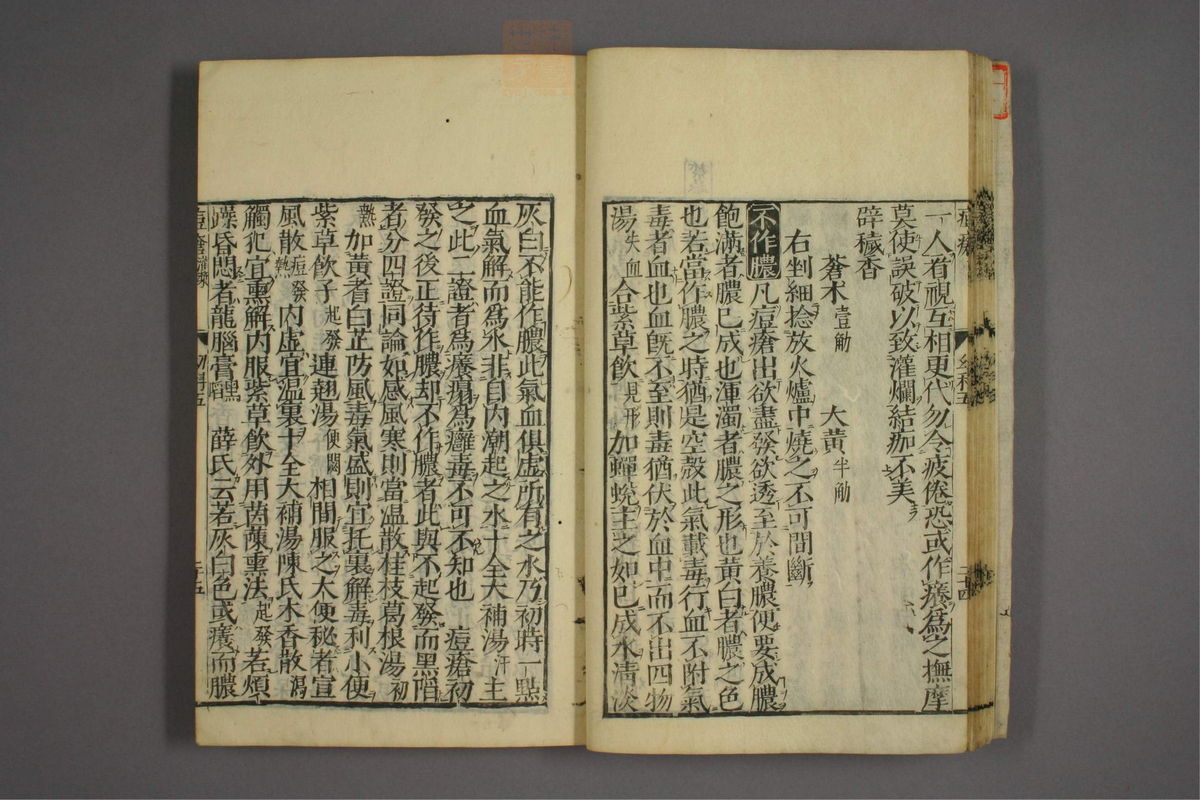 一人看視互相更代勿令疲倦恐或作癢為之撫摩
莫使誤破以致灌爛結痂不美
辟穢香
蒼朮壹觔 大黃半觔
右剉細捻放火爐中燒之不可間斷
不作膿凡痘瘡出欲盡發欲透至於養膿便要成膿
飽滿者膿已成也渾濁者膿之形也黃白者膿之色
也若當作膿之時猶是空殼此氣載毒行血不附氣
毒者血也血既不至則毒猶伏於血中而不出四物
湯失血合紫草飲見形加蟬蛻主之如已成水清淡
灰白不能作膿此氣血俱虛所有之水乃初時一點
血氣解而為水非自內潮起之水十全大補湯汗主
之此二證者為癢塌為癰毒不可不知也 痘瘡初
發之後正待作膿却不作膿者此與不起發而黑陷
者分四證同論如感風寒則當溫散桂枝葛根湯初
熱加黃者白芷防風毒氣盛則宜托裏解毒利小便
紫草飲子起發連翹湯便閉相間服之大便秘者宣
風散痘發熱內虛宜溫裏十全大補湯陳氏木香散瀉
觸犯宜熏解內服紫草飲外用茵蔯熏法起發若煩
躁昏悶者龍腦膏黑陷 薛氏云若灰白色或癢而膿
二十五